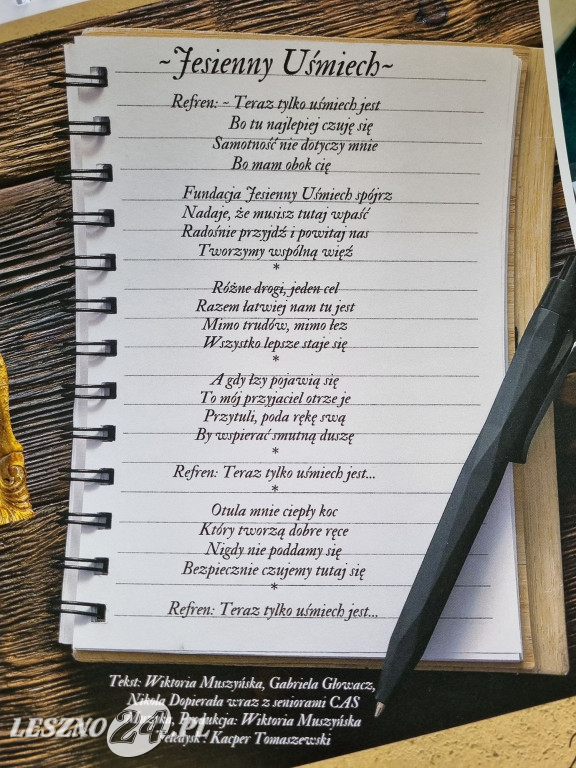 ~Jesienny Uśmiech~
Refren: ~ Teraz tylko uśmiech jest
Bo tu najlepiej czuję się
Samotność nie dotyczy mnie
Bo mam obok cię
Fundacja Jesienny Uśmiech spójrz
Nadaje, że musisz tutaj wpaść
Radośnie przyjdź i powitaj nas
Tworzymy wspólną więź
*
Różne drogi, jeden cel
Razem łatwiej nam tu jest
Mimo trudów, mimo łez
Wszystko lepsze staje się
*
A gdy łzy pojawią się
To mój przyjaciel otrze je
Przytuli, poda rękę swą
By wspierać smutną duszę
*
Refren: Teraz tylko uśmiech jest...
*
Otula mnie ciepły koc
Który tworzą dobre ręce
Nigdy nie poddamy się
Bezpiecznie czujemy tutaj się
*
Refren: Teraz tylko uśmiech jest...
Tekst: Wiktoria Muszyńska, Gabriela Głowacz,
Nikola Dopierała wraz z seniorami CAS
Muzyka, Produkcja: Wiktoria Muszyńska
Teledysk : Kacper Tomaszewski
LESZNO24.PL